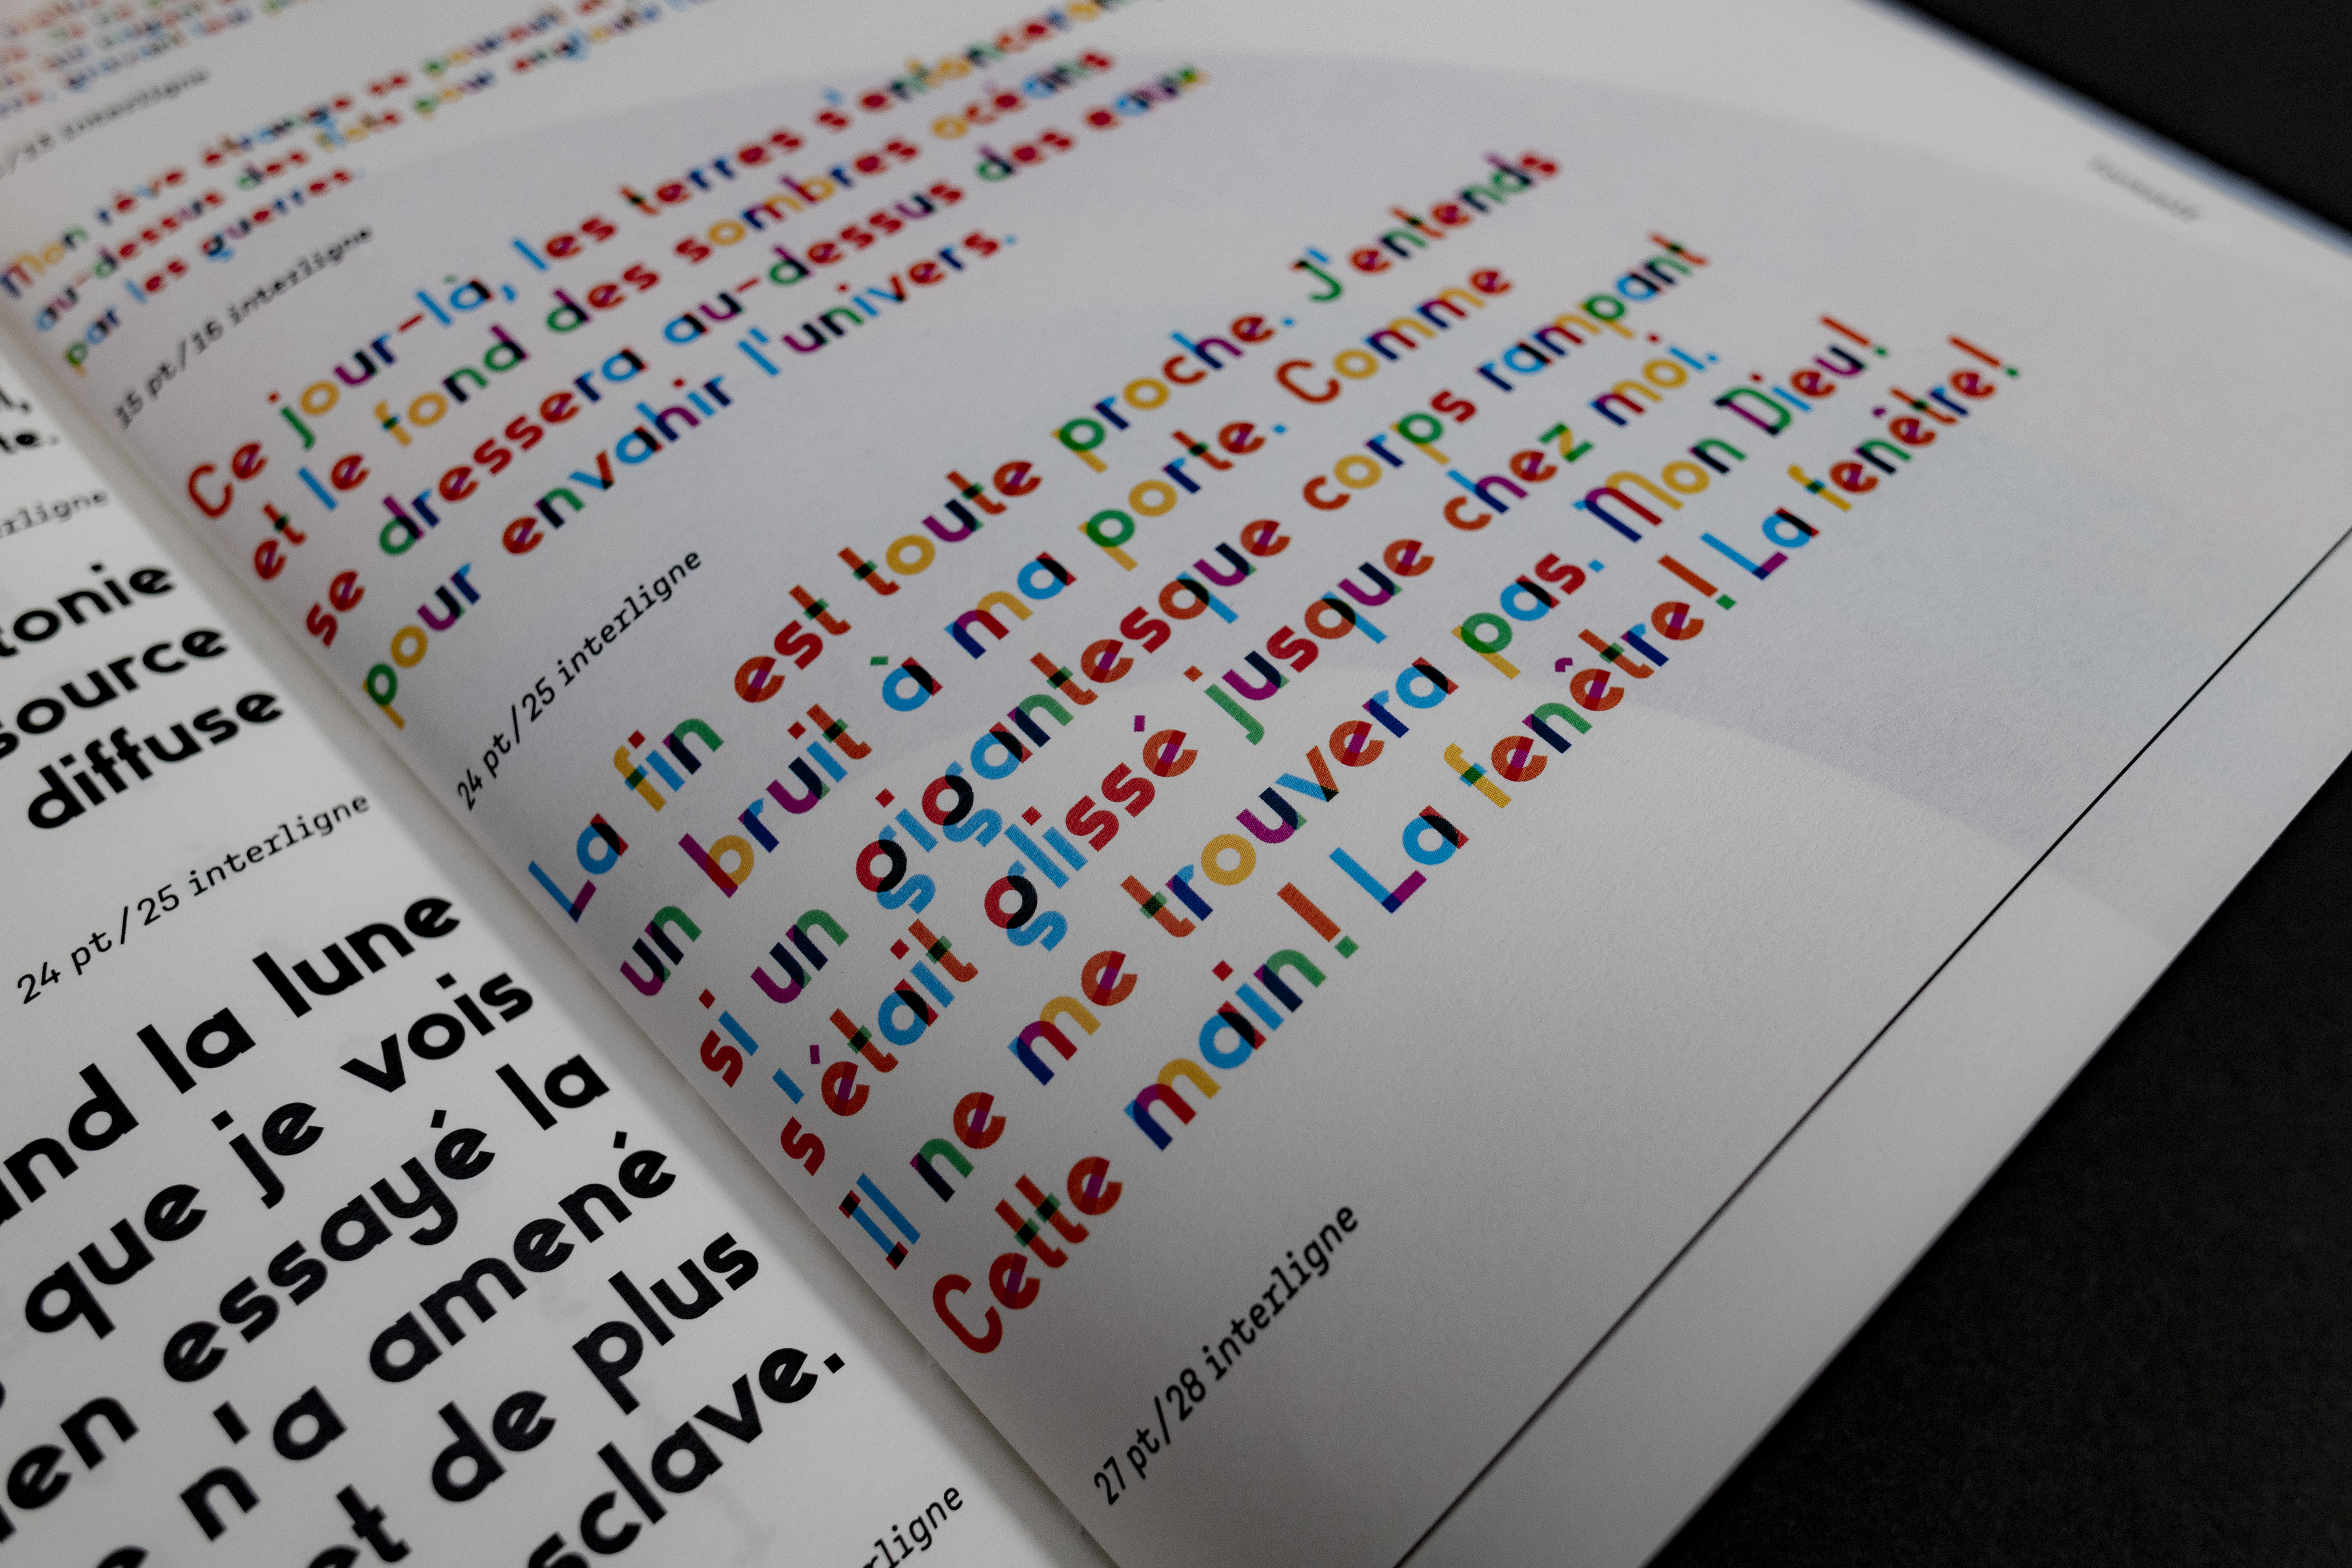 tonie
source
diffuse
24 pt/25 interligne
and la lune
que je vois
essayé la
n'a amené
et de plus
esclave.
Mon rêve étrange se
au-dessus des flots pour
par les guerres.
15 pt/16 interligne
Ce jour-là, les terres s'enfonceront
et le fond des sombres océans
se dressera au-dessus des eaux
pour envahir l'univers.
24 pt/25 interligne
La fin est toute proche. J'entends
un bruit à ma porte. Comme
si un gigantesque corps rampant
s'était glissé jusque chez moi.
Il ne me trouvera pas. Mon Dieu!
Cette main! La fenêtre! La fenêtre!
27 pt/28 interligne